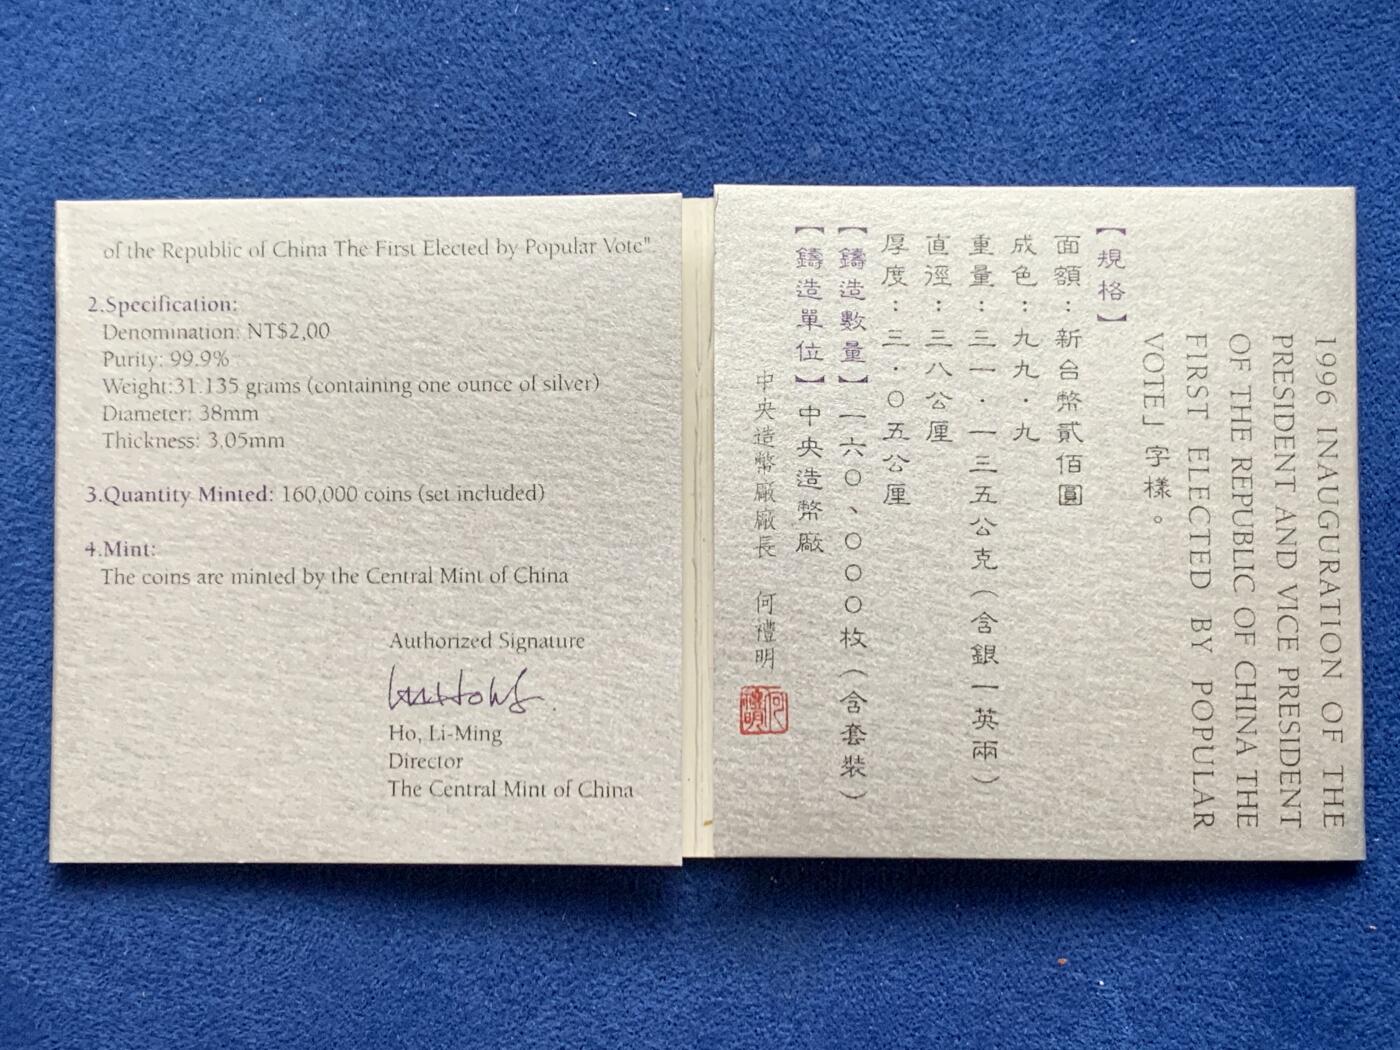 of the Republic of China The First Elected by Popular Vote".
2.Specification:
Denomination: NT$2,00
Purity: 99.9%
Weight:31.135 grams (containing one ounce of silver)
Diameter: 38mm
Thickness: 3.05mm
3.Quantity Minted: 160,000 coins (set included)
4.Mint:
The coins are minted by the Central Mint of China
Authorized Signature
Ho, Li-Ming
Director
The Central Mint of China
1996 INAUGURATION OF THE
PRESIDENT AND VICE PRESIDENT
OF THE REPUBLIC OF CHINA THE
FIRST ELECTED BY POPULAR
VOTE」字樣。
【規格】
面額：新台幣貳佰圓
成色：九九．九
重量：三一．一三五公克（含銀一英兩）
直徑：三八公厘
厚度：三．○五公厘
【鑄造數量】一六○、○○○枚（含套裝）
【鑄造單位】中央造幣廠
中央造幣廠廠長 何禮明